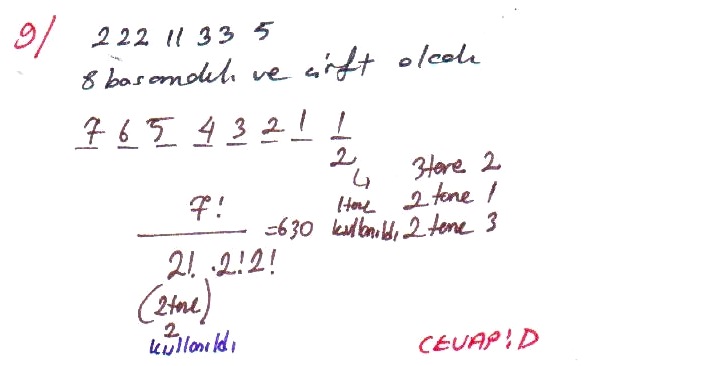 9/ 222 11 33 5
8 basamaklı ve çift olcak
7 6 5 4 3 2 1 1
2
↳ 3 tane 2
1 tane 2 tane 1
7! / 2! . 2! 2! = 630 kullanıldı, 2 tane 3
(2 tane)
2
kullanıldı
CEVAP: D